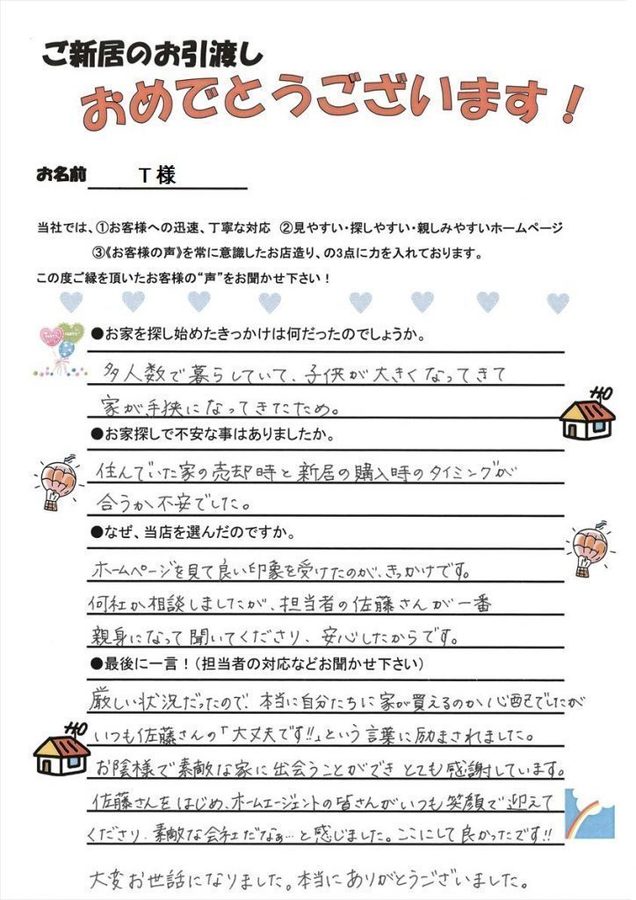 ご新居のお引渡し
おめでとうございます！
お名前 T様
当社では、①お客様への迅速、丁寧な対応 ②見やすい・探しやすい・親しみやすいホームページ
③《お客様の声》を常に意識したお店造り、の3点に力を入れております。
この度ご縁を頂いたお客様の“声”をお聞かせ下さい！
●お家を探し始めたきっかけは何だったのでしょうか。
多人数で暮らしていて、子供が大きくなってきて
家が手狭になってきたため。
●お家探しで不安な事はありましたか。
住んでいた家の売却時と新居の購入時のタイミングが
合うか不安でした。
●なぜ、当店を選んだのですか。
ホームページを見て良い印象を受けたのが、きっかけです。
何社か相談しましたが、担当者の佐藤さんが一番
親身になって聞いてくださり、安心したからです。
●最後に一言！（担当者の対応などお聞かせ下さい）
厳しい状況だったので、本当に自分たちに家が買えるのか心配でしたが
いつも佐藤さんの「大丈夫です!!」という言葉に励まされました。
お陰様で素敵な家に出会うことができ とても感謝しています。
佐藤さんをはじめ、ホームエージェントの皆さんがいつも笑顔で迎えて
くださり、素敵な会社だなぁ…と感じました。ここにして良かったです!!
大変お世話になりました。本当にありがとうございました。